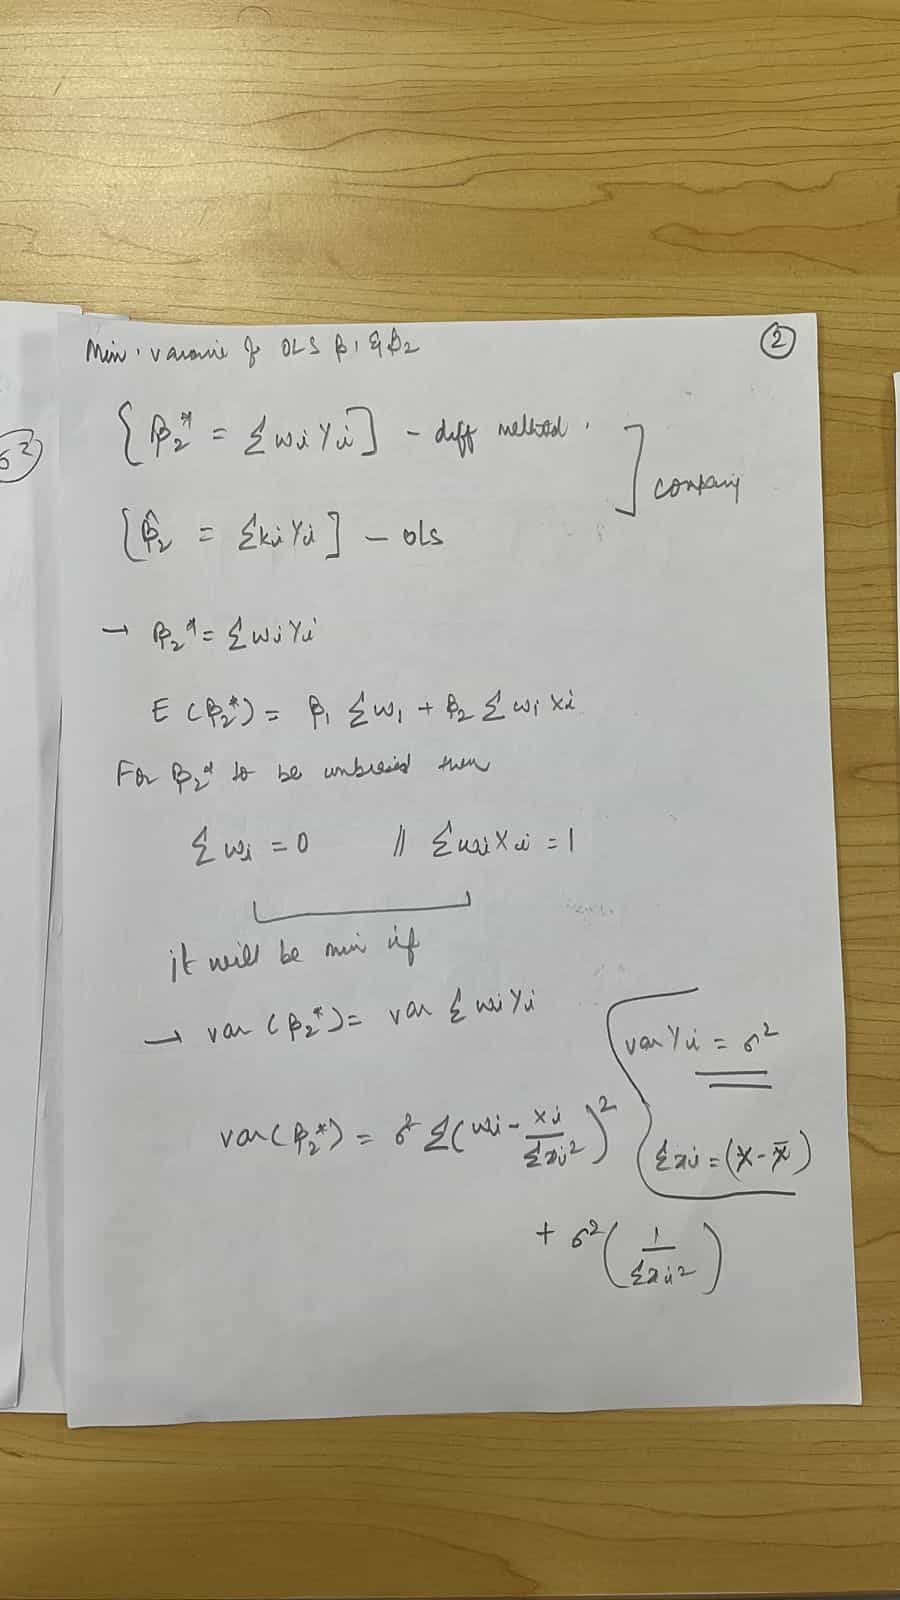 ②
Min. variance of OLS β₁ & β₂
{β₂* = Σ wi Yi] – diff method.
[β̂₂ = Σ ki Yi] – OLS
] comparing
→ β₂* = Σ wi Yi
E (β₂*) = β₁ Σ wi + β₂ Σ wi Xi
For β₂* to be unbiased then
Σ wi = 0 // Σ wi Xi = 1
it will be min if
→ var (β₂*) = var Σ wi Yi
var Yi = σ²
var (β₂*) = σ² Σ( wi - xi / Σxi² )²
Σ xi = (X - X̄)
+ σ² ( 1 / Σxi² )
σ²